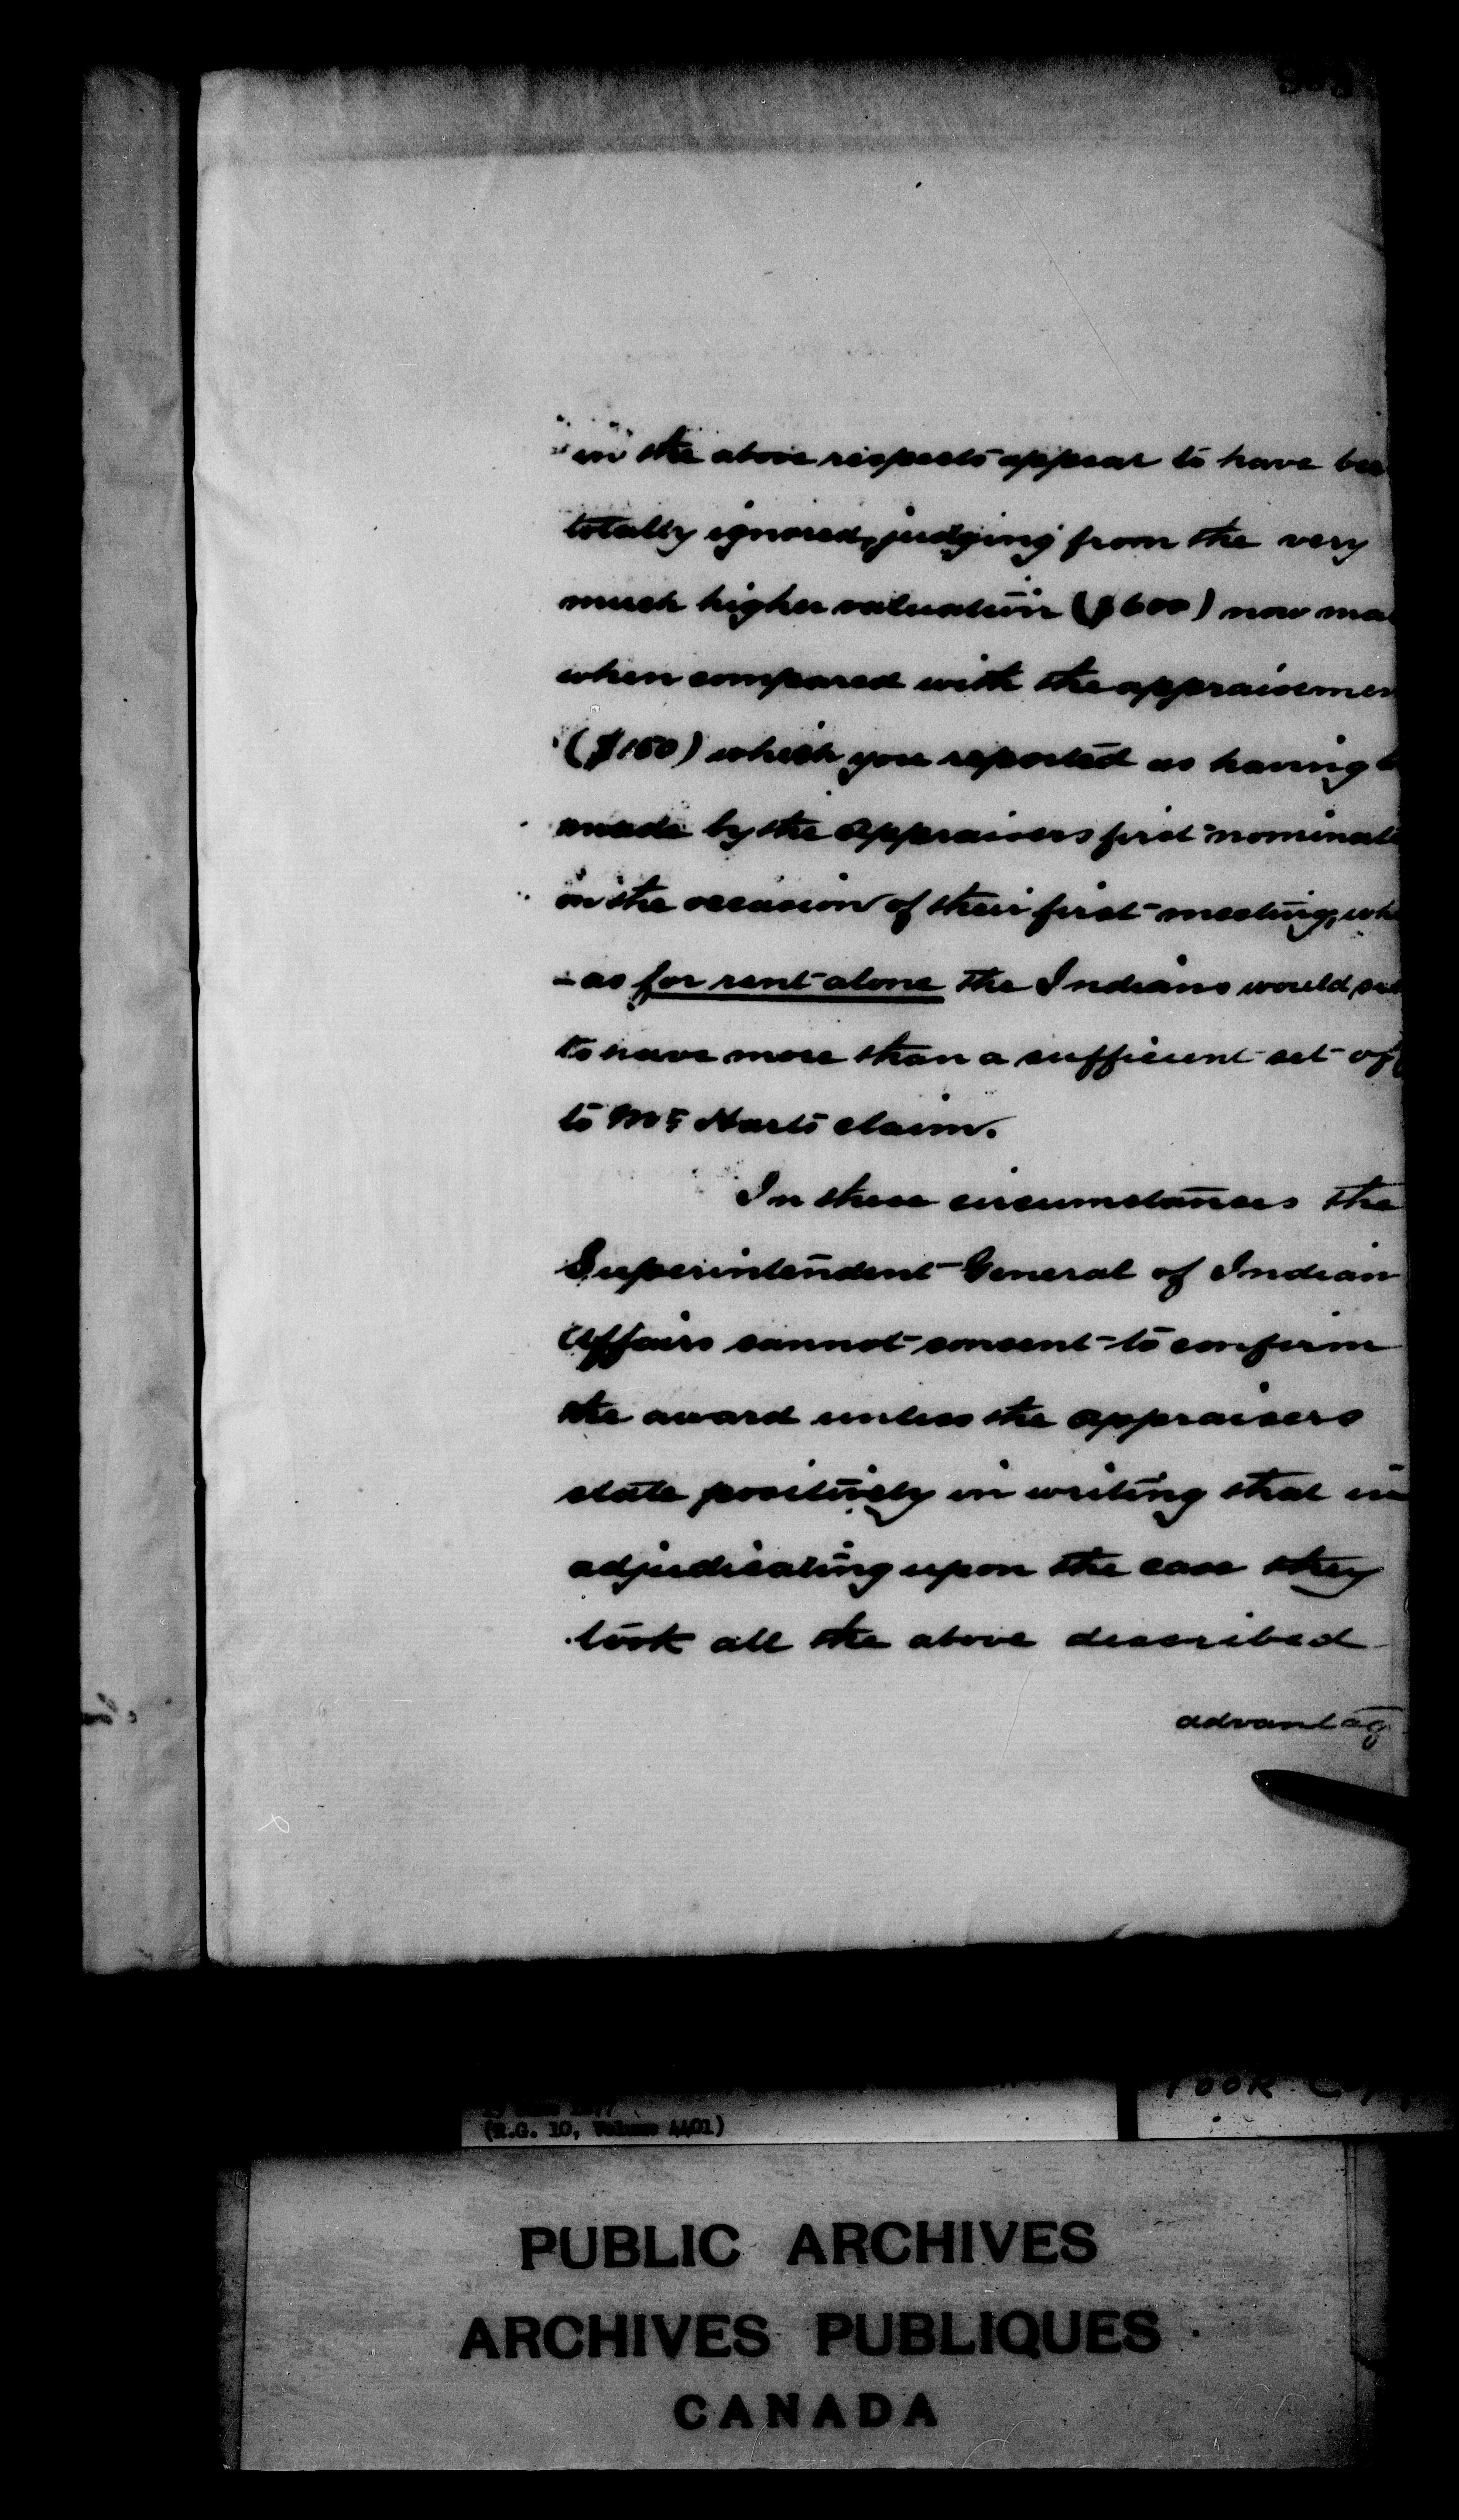 in the above respects appear to have bee
totally ignored, judging from the very
much higher valuation ($600) now ma
when compared with the appraisemen
($150) which you reported as having b
made by the appraisers first nominate
on the occasion of their first meeting, whe
-as for rent alone the Indians would
to have more than a sufficient set off
to Mr. Hart's claim.
In these circumstances the
Superintendent General of Indian
Affairs cannot consent to confirm
the award unless the appraisers
state positively in writing that in
adjudicating upon the case they
took all the above described
advantag
(R.G. 10, Volume 4401)
PUBLIC ARCHIVES
ARCHIVES PUBLIQUES
CANADA